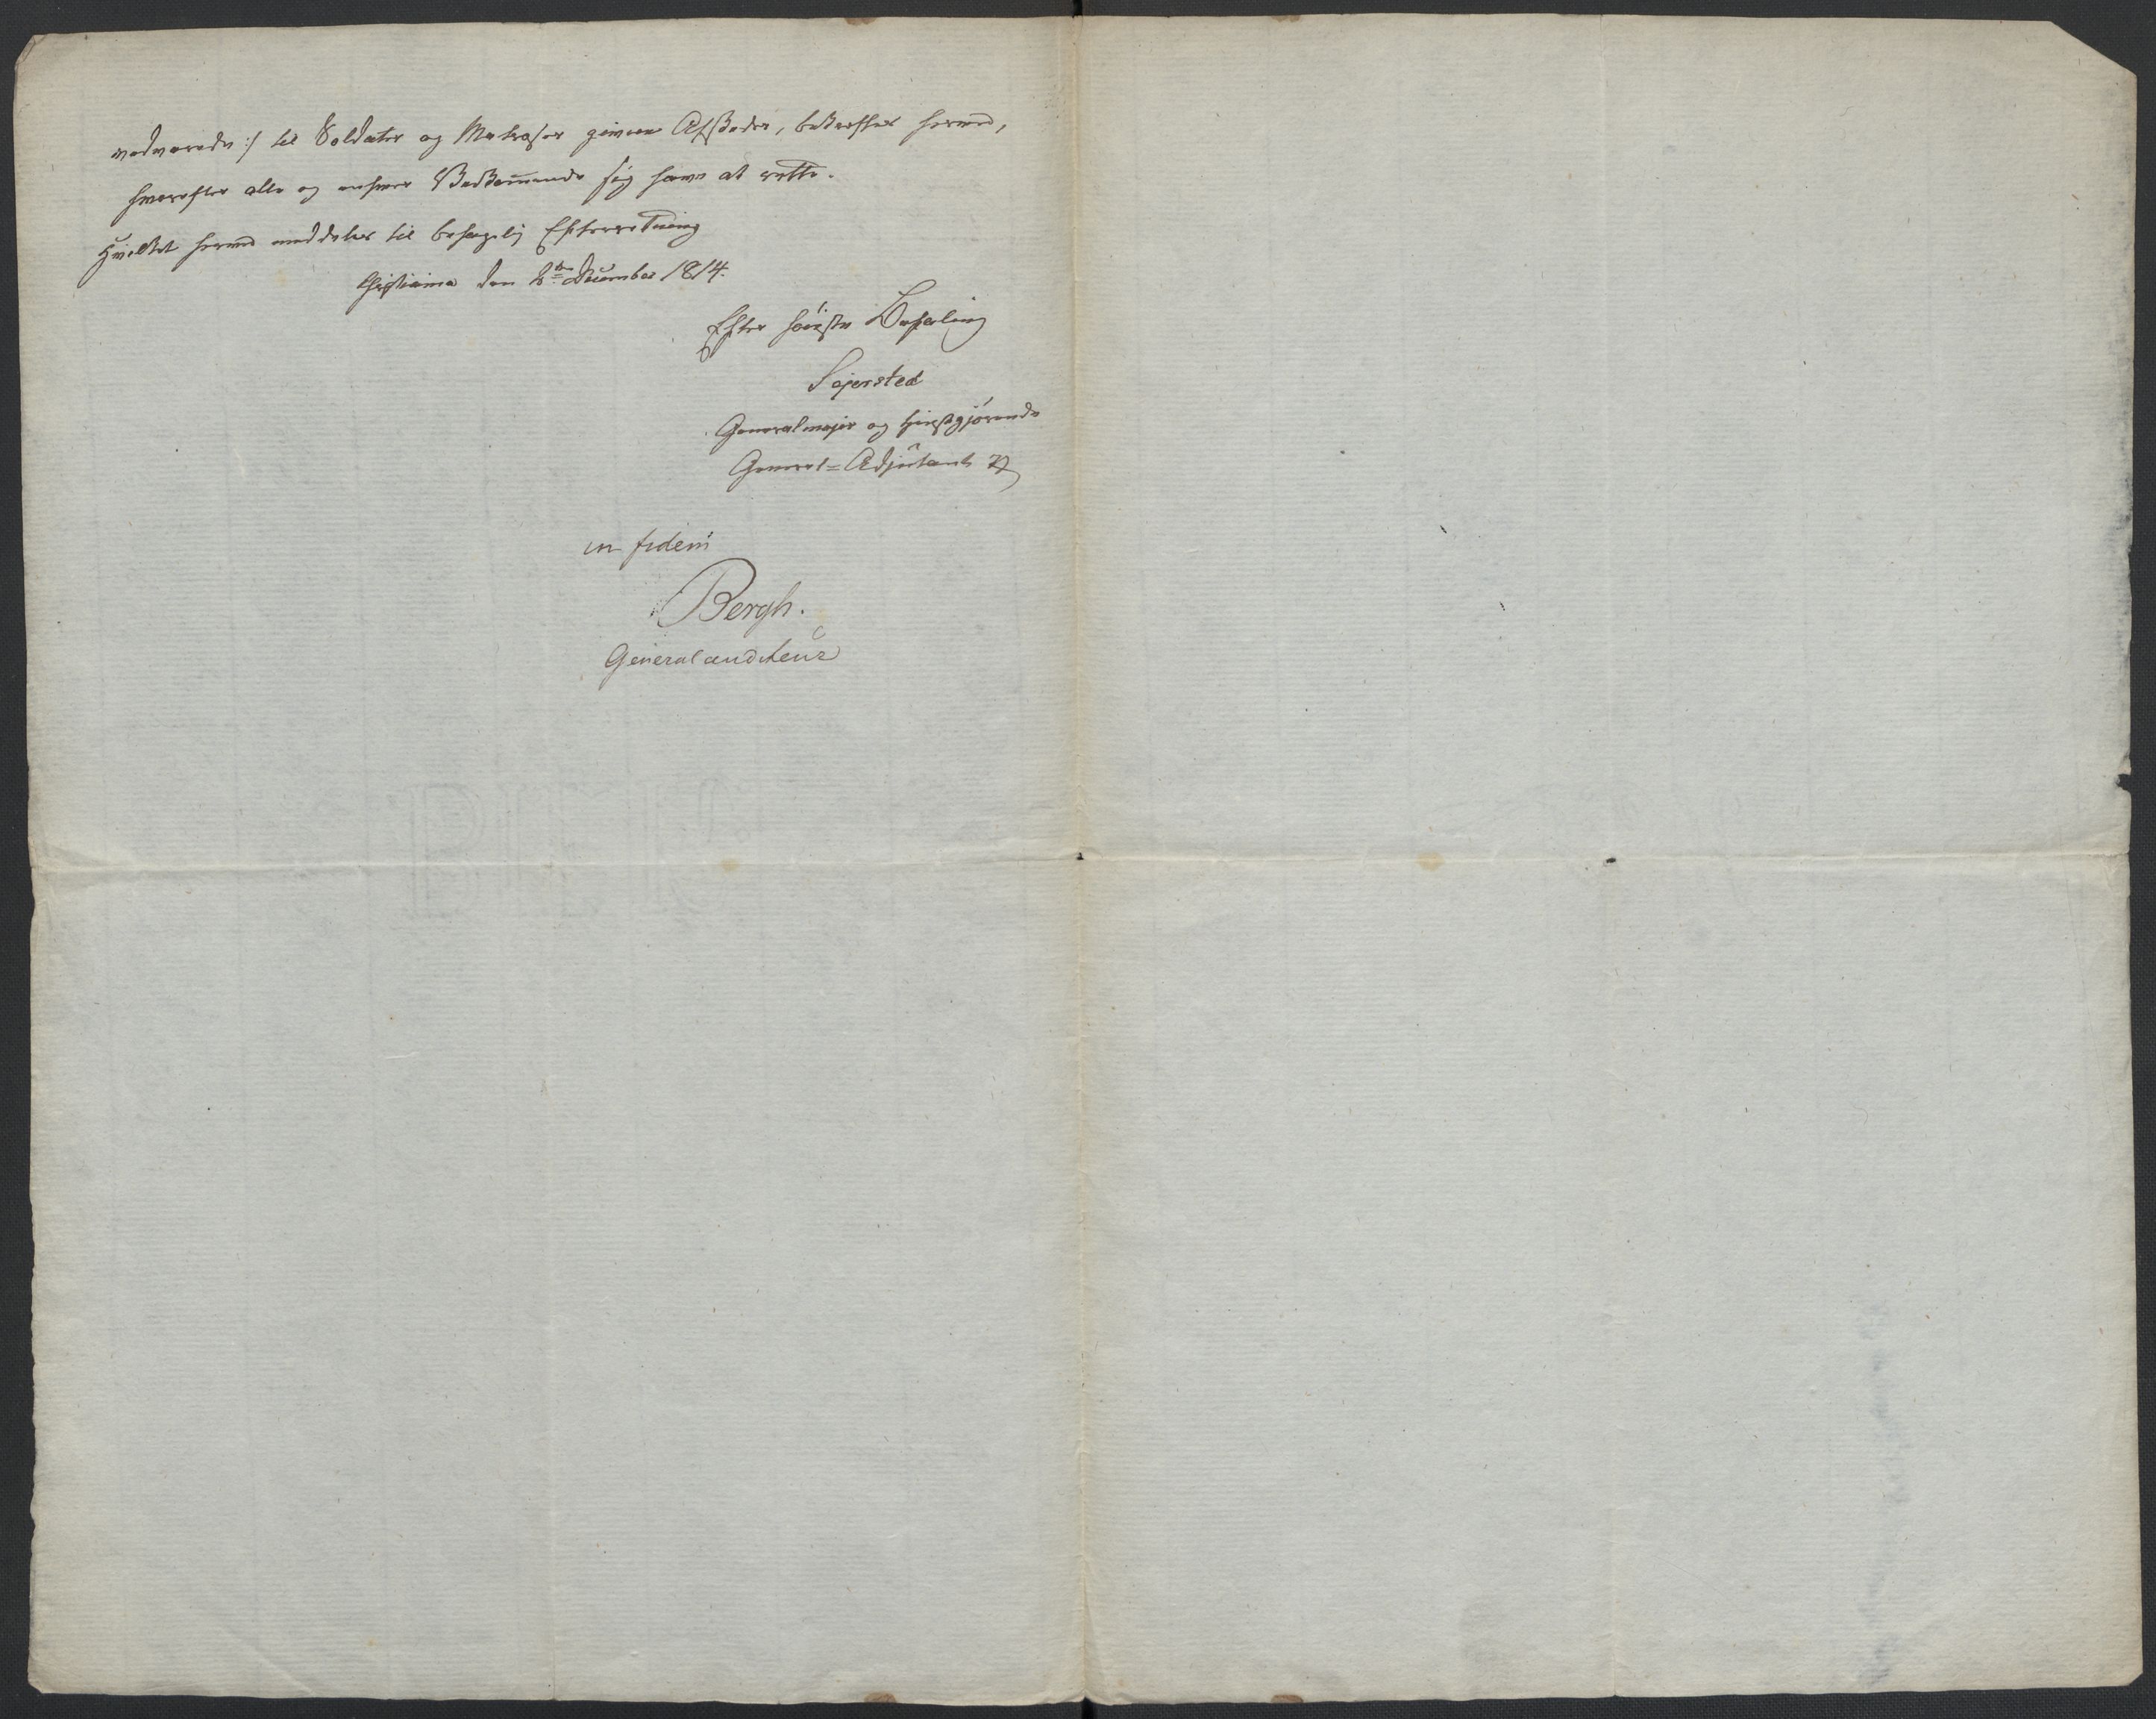 vedvarede :/ til Soldater og Matroser givne Afskeder, bekræftes herved,
hvorefter alle og enhver Vedkommende sig have at rette.
Hvilket herved meddeles til behagelig Efterretning
Christiania den 2den December 1814.
Efter høieste Befaling
Sejersted
Generalmajor og tjenstgjørende
General-Adjutant
in fidem
Bergh.
Generalauditeur